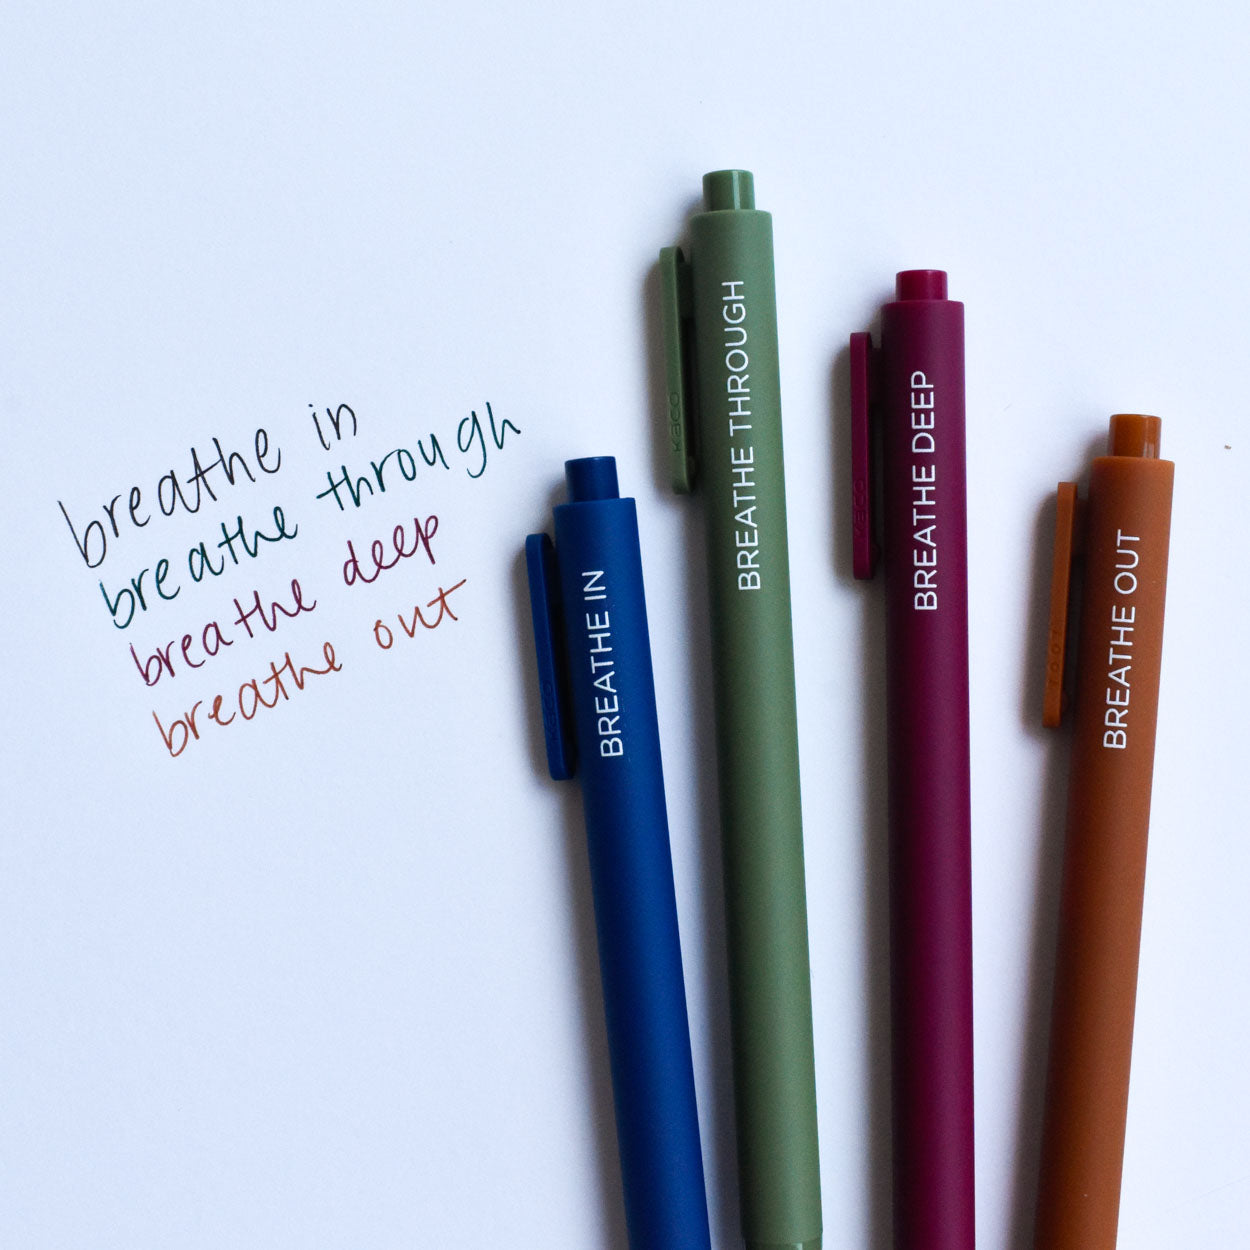 breathe in
breathe through
breathe deep
breathe out
BREATHE IN
BREATHE THROUGH
BREATHE DEEP
BREATHE OUT
KACO
KACO
KACO